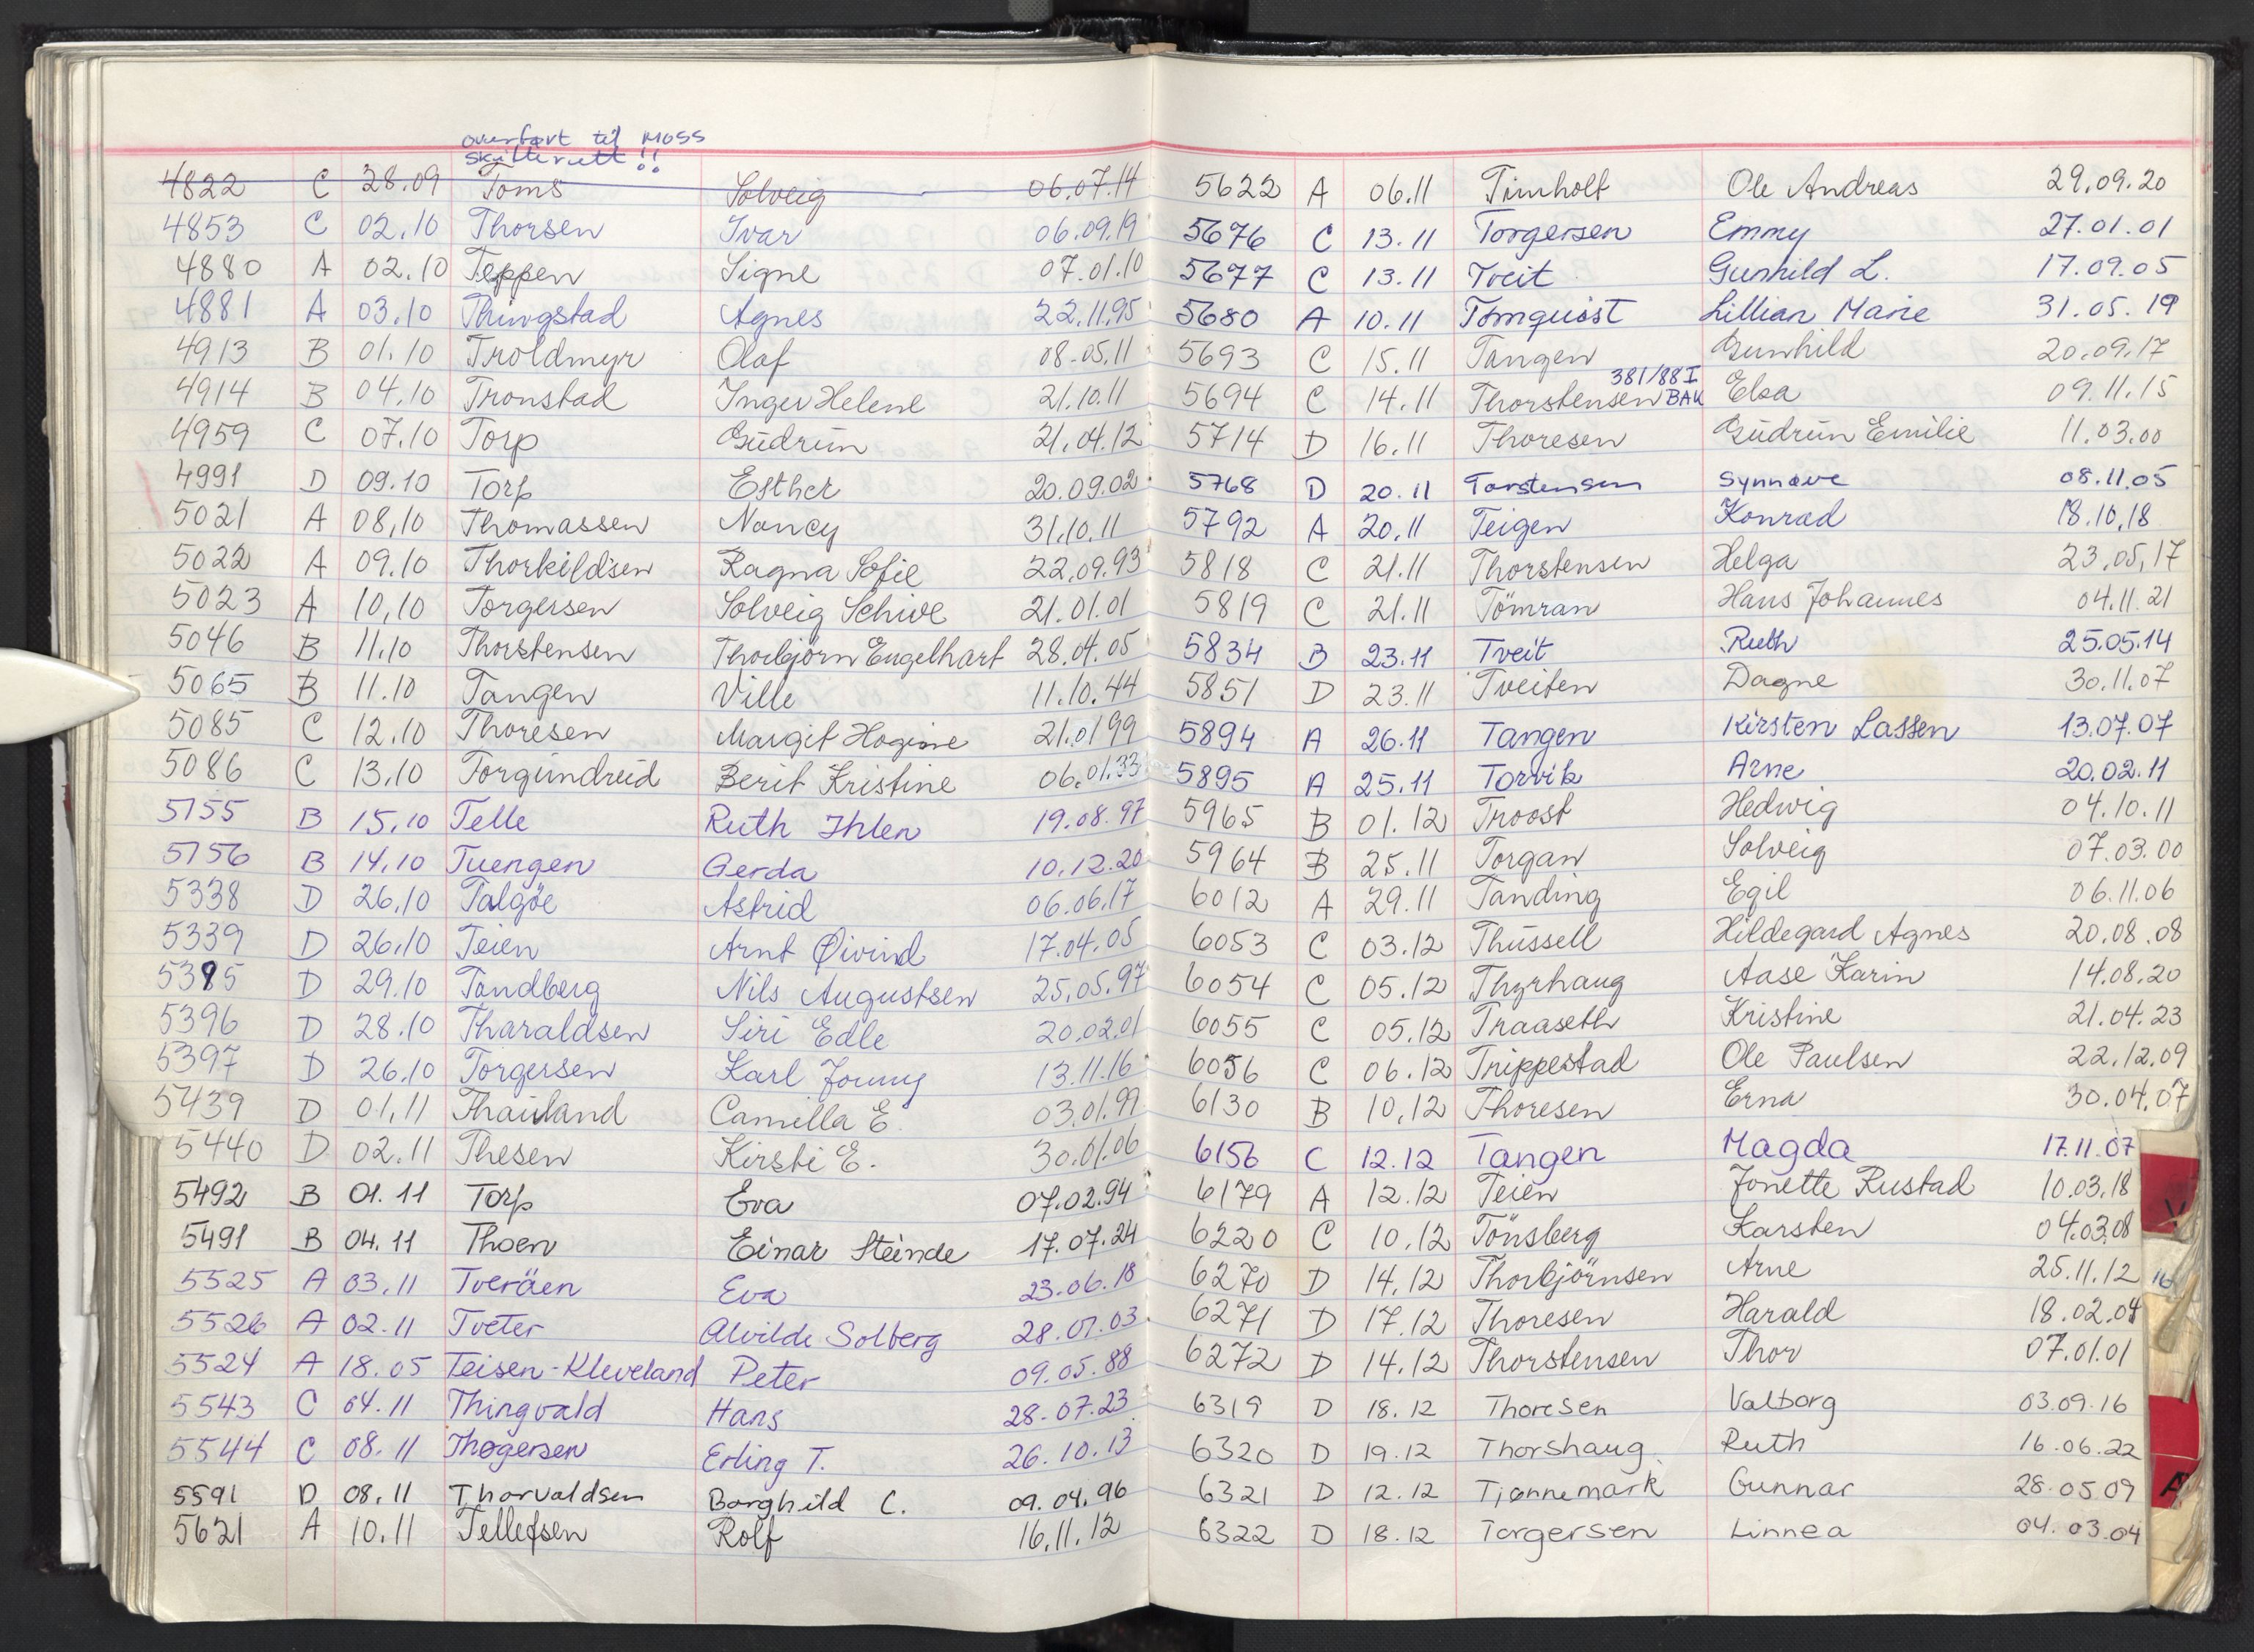 overført til MOSS
skifterett!!
4822 C 28.09 Toms Solveig 06.07.14
4853 C 02.10 Thorsen Ivar 06.09.19
4880 A 02.10 Teppen Signe 07.01.10
4881 A 03.10 Thingstad Agnes 22.11.95
4913 B 01.10 Troldmyr Olaf 08.05.11
4914 B 04.10 Tronstad Inger Helene 21.10.11
4959 C 07.10 Torp Gudrun 21.04.12
4991 D 09.10 Torp Esther 20.09.02
5021 A 08.10 Thomassen Nancy 31.10.11
5022 A 09.10 Thorkildsen Ragna Sofie 22.09.93
5023 A 10.10 Torgersen Solveig Schive 21.01.01
5046 B 11.10 Thorstensen Thorbjörn Engelhart 28.04.05
5065 B 11.10 Tangen Ville 11.10.44
5085 C 12.10 Thoresen Margit Hogine 21.01 99
5086 C 13.10 Torgundreid Berit Kristine 06.01.33
5155 B 15.10 Telle Ruth Ihlen 19.08.97
5156 B 14.10 Tuengen Gerda 10.12.20
5338 D 26.10 Talgöe Astrid 06.06.17
5339 D 26.10 Teien Arnt Øivind 17.04.05
5395 D 29.10 Tandberg Nils Augustsen 25.05.97
5396 D 28.10 Tharaldsen Siri Edle 20.02.01
5397 D 26.10 Torgersen Karl Jonny 13.11.16
5439 D 01.11 Thauland Camilla E. 03.01.99
5440 D 02.11 Thesen Kirsti E. 30.01.06
5492 B 01.11 Torp Eva 07.02.94
5491 B 04.11 Thoen Einar Steinde 17.07.24
5525 A 03.11 Tveräen Eva 23.06.18
5526 A 02.11 Tveter Alvilde Solberg 28.07.03
5524 A 18.05 Teisen-Kleveland Peter 09.05.88
5543 C 04.11 Thingvald Hans 28.07.23
5544 C 08.11 Thøgersen Erling T. 26.10.13
5591 D 08.11 Thorvaldsen Borghild C. 09.04.96
5621 A 10.11 Tellefsen Rolf 16.11.12
5622 A 06.11 Timholt Ole Andreas 29.09.20
5676 C 13.11 Torgersen Emmy 27.01.01
5677 C 13.11 Tveit Gunhild L. 17.09.05
5680 A 10.11 Tömquist Lillian Marie 31.05.19
5693 C 15.11 Tangen Gunhild 20.09.17
381/88 I
5694 C 14.11 Thorstensen BAK Elsa 09.11.15
5714 D 16.11 Thoresen Gudrun Emilie 11.03.00
5768 D 20.11 Torstensen Synnøve 08.11.05
5792 A 20.11 Teigen Konrad 18.10.18
5818 C 21.11 Thorstensen Helga 23.05.17
5819 C 21.11 Tömran Hans Johannes 04.11.21
5834 B 23.11 Tveit Ruth 25.05.14
5851 D 23.11 Tveiten Dagne 30.11.07
5894 A 26.11 Tangen Kirsten Lassen 13.07.07
5895 A 25.11 Torvik Arne 20.02.11
5965 B 01.12 Troost Hedwig 04.10.11
5964 B 25.11 Torgan Solveig 07.03.00
6012 A 29.11 Tanding Egil 06.11.06
6053 C 03.12 Thussell Hildegard Agnes 20.08.08
6054 C 05.12 Thyrhaug Aase Karin 14.08.20
6055 C 05.12 Traaseth Kristine 21.04.23
6056 C 06.12 Trippestad Ole Paulsen 22.12.09
6130 B 10.12 Thoresen Erna 30.04.07
6156 C 12.12 Tangen Magda 17.11.07
6179 A 12.12 Teien Jonette Rustad 10.03.18
6220 C 10.12 Tönsberg Karsten 04.03.08
6270 D 14.12 Thorbjörnsen Arne 25.11.12
6271 D 17.12 Thoresen Harald 18.02.04
6272 D 14.12 Thorstensen Thor 07.01.01
6319 D 18.12 Thoresen Valborg 03.09.16
6320 D 19.12 Thorshaug Ruth 16.06.22
6321 D 12.12 Tjønnemark Gunnar 28.05.09
6322 D 18.12 Torgersen Linnea 04.03.04